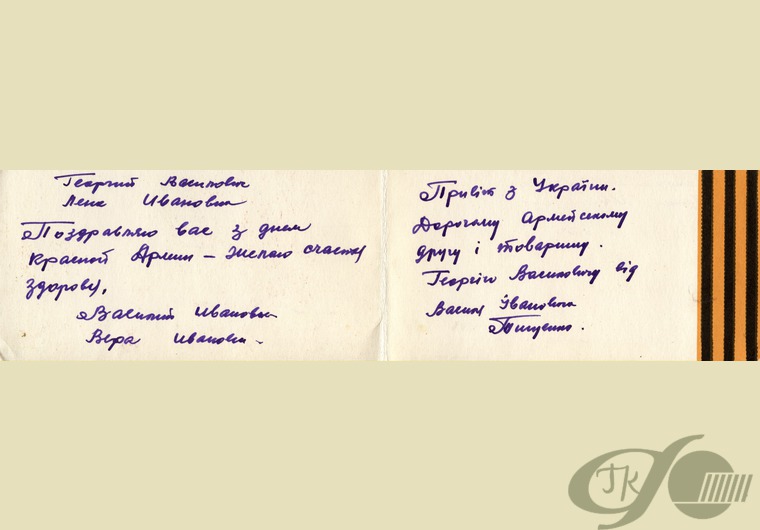 Георгий Васильевич
Лена Ивановна
Поздравляю вас з днем
Красной Армии – Желаю счастья
здоровья,
Василий Иванович
Вера Ивановна.
Привіт з України.
Дорогому Армейському
другу і товаришу.
Георгію Васильовичу від
Василя Івановича
Тищенко.
ГК